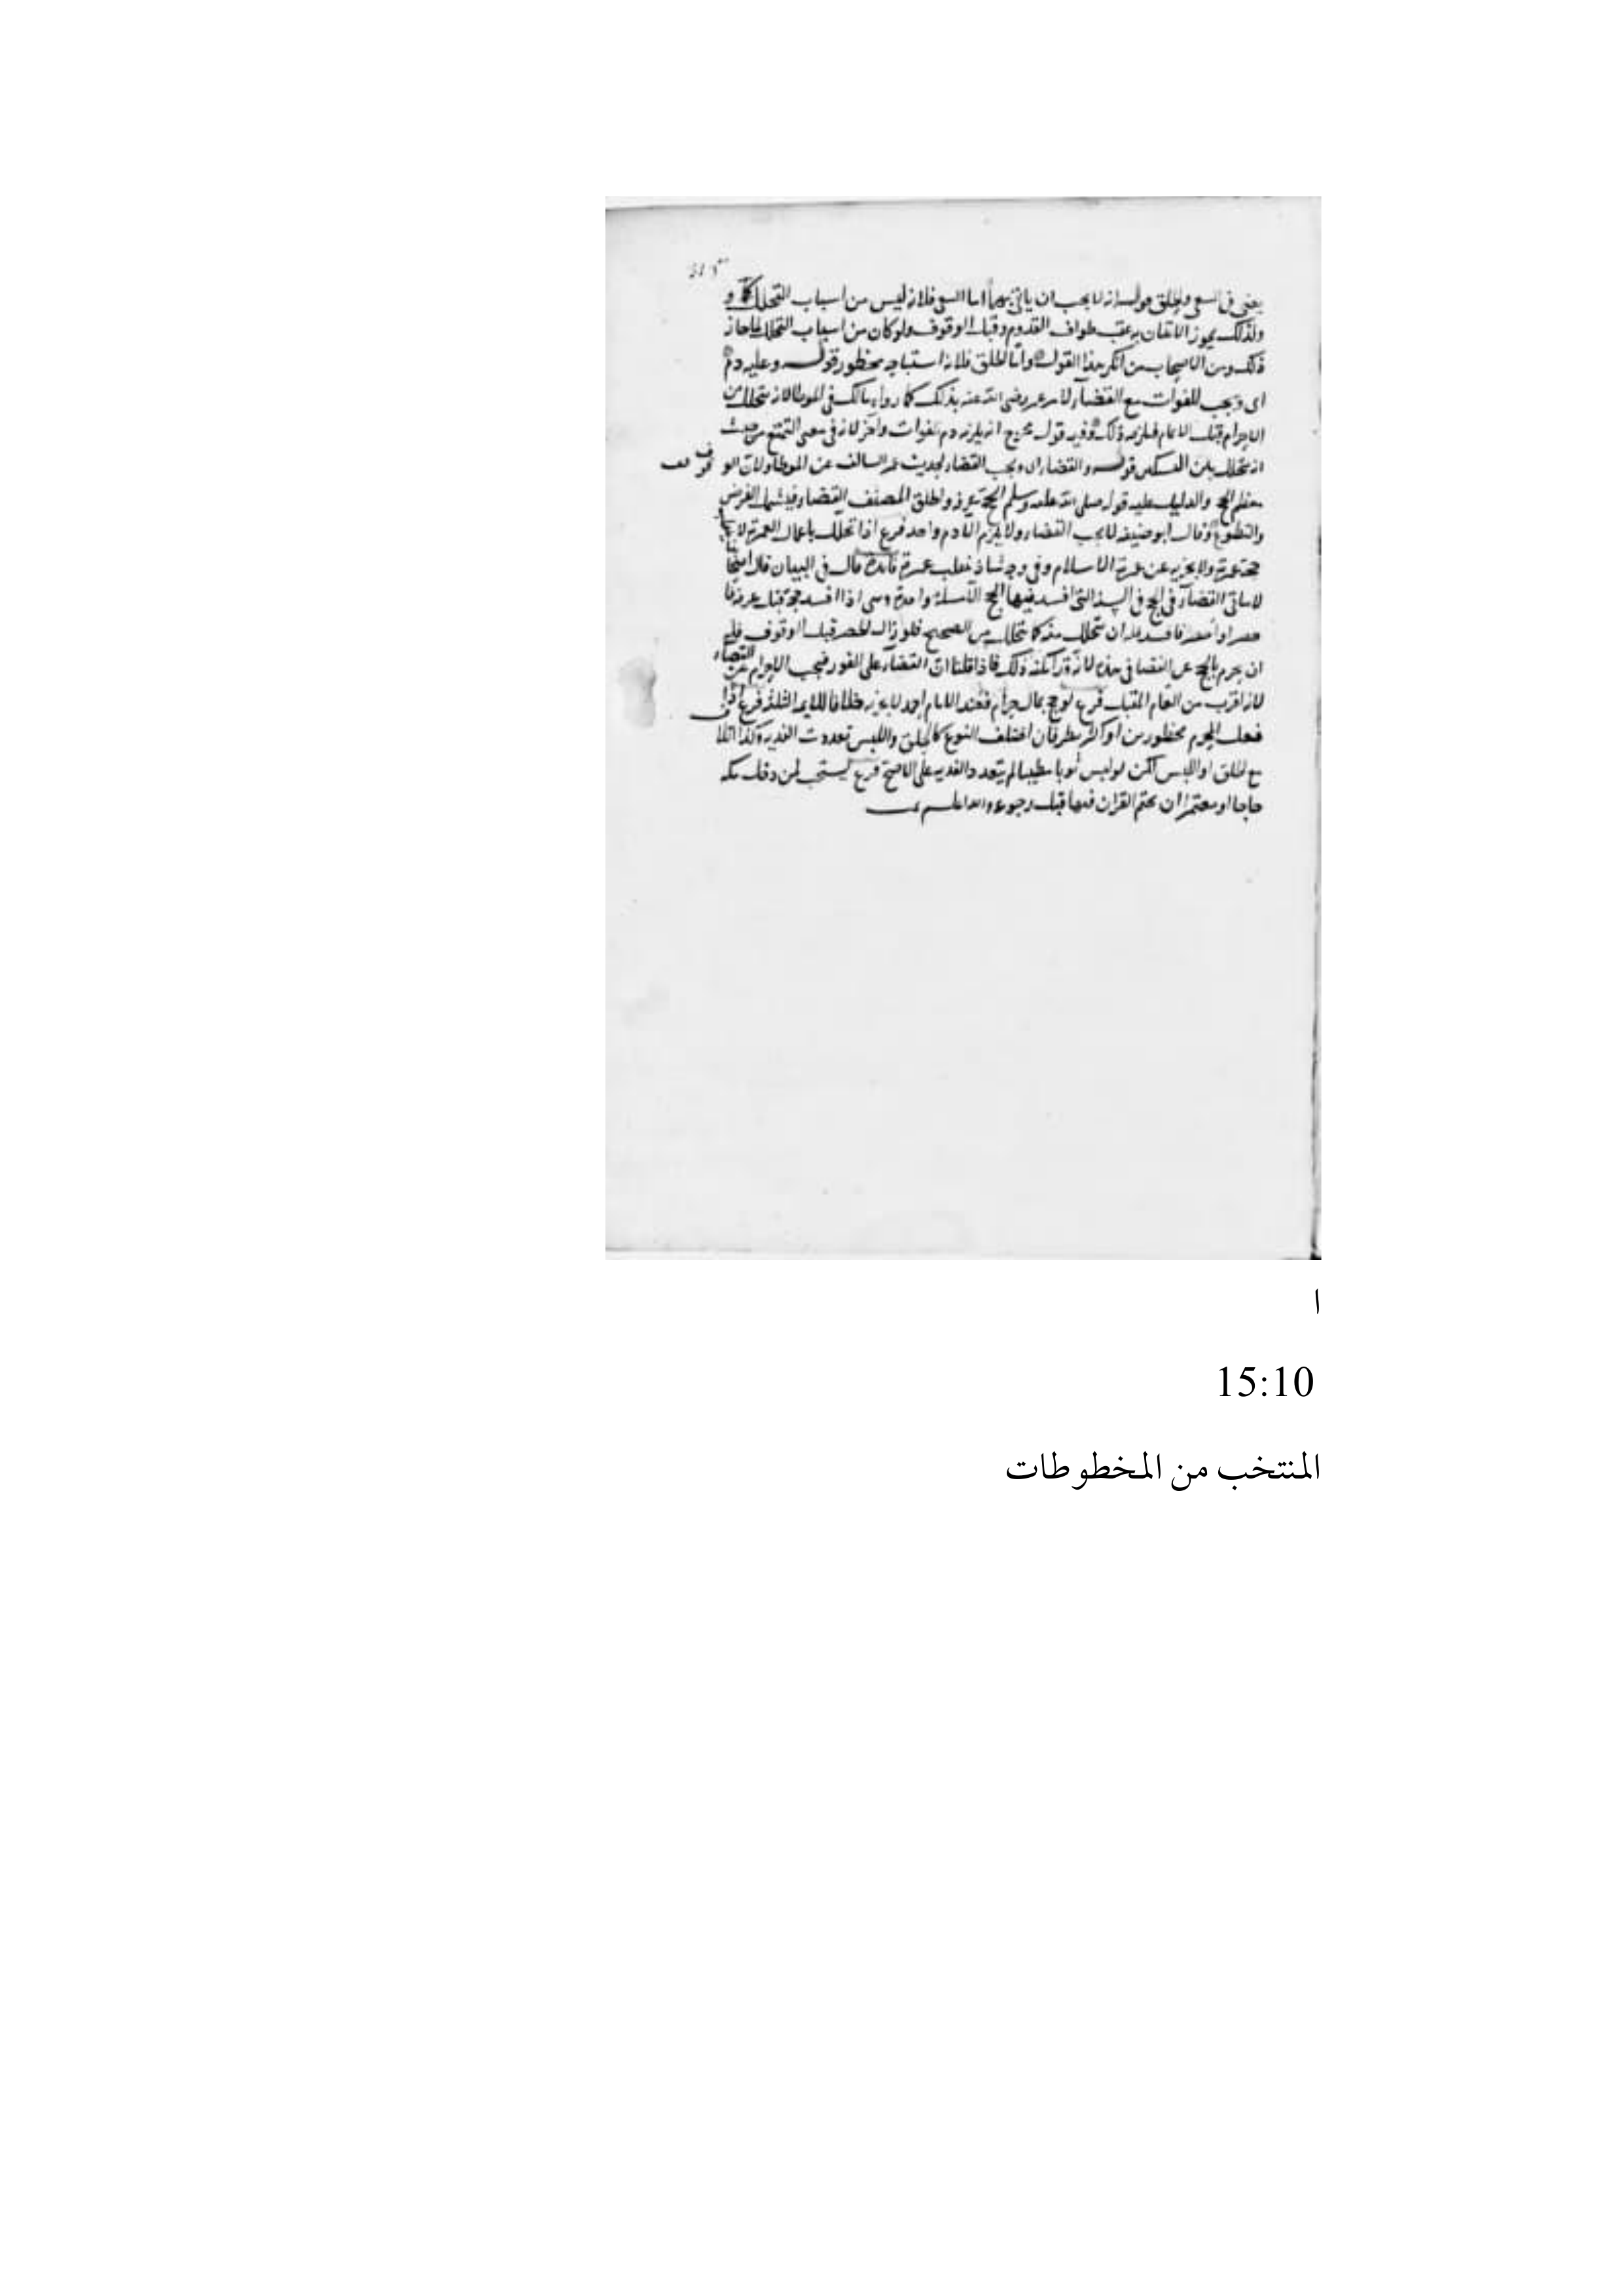 يعني في السعي والحلق قول انه لا يجب ان ياتي بهما اما السعي فلانه ليس من اسباب التحلل
ولذلك يجوز الاتيان به عقب طواف القدوم وقبل الوقوف ولو كان من اسباب التحلل لما جاز
ذلك ومن الاصحاب من انكر هذا القول واما الحلق فلانه استباحه محظور قوله وعليه دم
اى ويجب للفوات مع القضاء لامر عمر رضي الله عنه بذلك كما رواه مالك في الموطا لانه تحلل من
الاحرام قبل الاتمام فلزمه ذلك وفيه قول مخرج انه يلزمه دم للفوات واخر لانه في معنى التمتع من حيث
انه تحلل بين النسكين قوله والقضاء اى ويجب القضاء لحديث عمر السالف عن الموطا ولان الوقوف
معظم الحج والدليل عليه قوله صلى الله عليه وسلم الحج عرفه واطلق المصنف القضاء فيشمل الفرض
والتطوع وقال ابو حنيفه لا يجب القضاء ولا يلزم الا دم واحد فرع اذا تحلل باعمال العمرة لا
حجته عمرة ولا يجزيه عن عمرة الاسلام وفي وجه شاذ ينقلب عمرة فائدة قال في البيان قال اصحابنا
لا ياتي القضاء في الحج في السنة التي افسد فيها الحج الا مسئلة واحدة وهي اذا افسد حجه قبل عرفة
حصر او احصر فافسد فله ان يتحلل منه كما يتحلل من الصحيح فلو زال الحصر قبل الوقوف فله
ان يحرم بالحج عن القضا في هذه لانه قد امكنه ذلك فاذا قلنا ان القضاء على الفور فيجب الاحرام عن القضاء
لانه اقرب من العام المقبل فرع لو حج بمال حرام فعند الامام احمد لا يجزيه خلافا للايمه الثلثة فرع اذا
فعل المحرم محظورين او اكثر نظر فان اختلف النوع كالحلق واللبس تعددت الفدية وكذا
مع الحلق او اللبس لكن لو لبس ثوبا مطيبا لم يتعدد الفديه على الاصح فرع يستحب لمن دخل مكه
حاجا او معتمرا ان يختم القران فيها قبل رجوعه والله اعلم
ا
15:10
المنتخب من المخطوطات